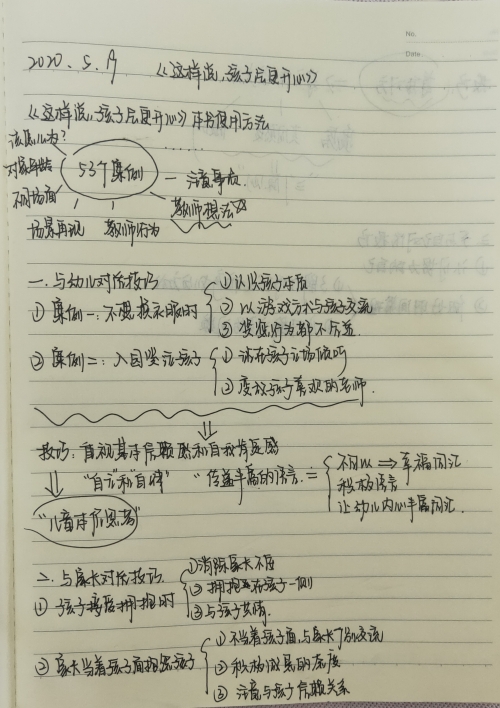 No.
Date.
2020.5.月 《这样说,孩子会更开心》
《这样说,孩子会更开心》本书使用方法
该怎么办? ……
对象年龄 53个案例 — 注意事项
不同场面 教师想法☆
场景再现 教师行为
一.与幼儿对话技巧 ①认识孩子本质
①案例一:不想换衣服时 ②以游戏方式与孩子交流
③奖惩行为都不尽善
②案例二:入园哭泣孩子 ①站在孩子立场倾听
②变成孩子喜欢的老师.
技巧:重视基本信赖感和自我肯定感
"自立"和"自律" "传益丰富的语言.= 不同以⇒幸福词汇
积极语言
"儿童本位思考" 让幼儿内心丰富词汇.
二.与家长对话技巧 ①消除家长不安
①孩子接后拥抱时 ②拥抱在孩子一侧
③与孩子共情.
②家长当着孩子面抱怨孩子 ①不当着孩子面,与家长个别交流
②积极沟通的态度
③注意与孩子信赖关系